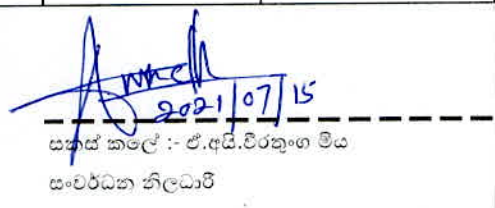 2021/07/15
සකස් කලේ :- ඒ.අයි.වීරතුංග මිය
සංවර්ධන නිලධාරී